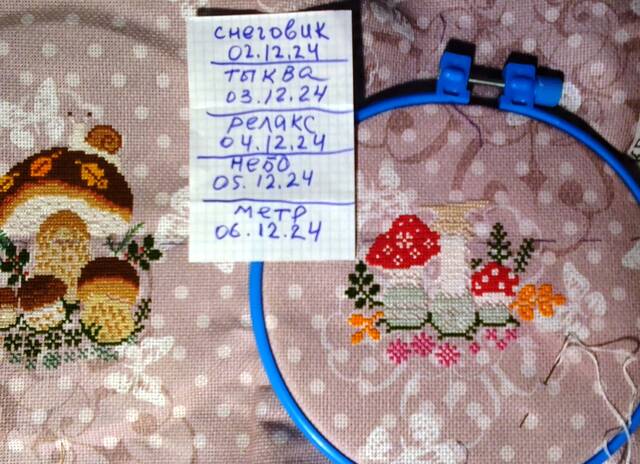 снеговик
02.12.24
тыква
03.12.24
релакс
04.12.24
небо
05.12.24
метр
06.12.24